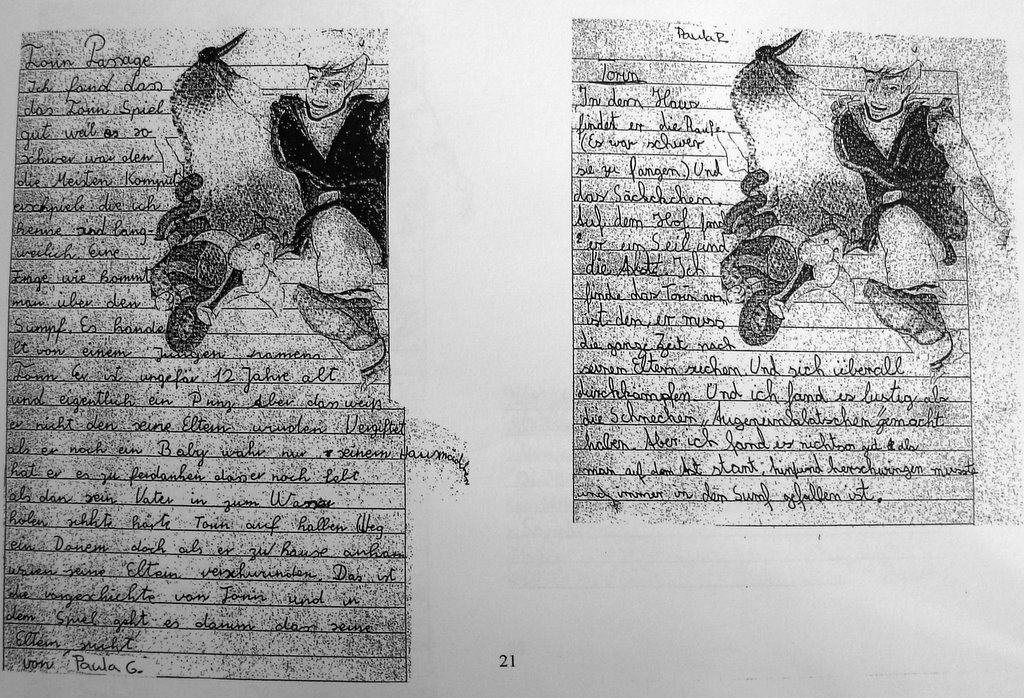 Torin Passage
Ich fand das
das Torin Spiel
gut weil es so
schwer war den
die Meisten Komput
erschpiele die ich
kenne sind lang-
weilich Eine
Frage wie kommt
man über den
Sumpf. Es hande
lt von einem Jungen namens
Torin Er ist ungefär 12 Jahre alt
und eigentlich ein Prinz Aber das weiß
er nicht den seine Eltern wurden Vergiftet
als er noch ein Baby wahr nur seinem Hausmädch
hat er es zu ferdanken das er noch lebt
als dan sein Vater in zum Wasser
holen schkte hörte Torin auf halben Weg
ein Donern doch als er zu hause ankam
waren seine Eltern verschwunden. Das ist
die vorgeschichte von Torin und in
dem Spiel geht es darum das er seine
Eltern sucht
von Paula G.
Paula R
Torin
In dem Haus
findet er die Raupe.
(Es war schwer
sie zu fangen.) Und
das Säckchen
Auf dem Hof fand
er ein Seil und
die Axt. Ich
finde das Torin arm
ist den er muss
die ganze Zeit nach
seinen Eltern suchen. Und sich überall
durchkämpfen. Und ich fand es lustig als
die Schnecken "Augeneinsalatschen" gemacht
haben Aber ich fand es nicht so gut als
man auf dem Ast stant, hin und herschwingen musste
und immer in den Sumf gefallen ist.
21